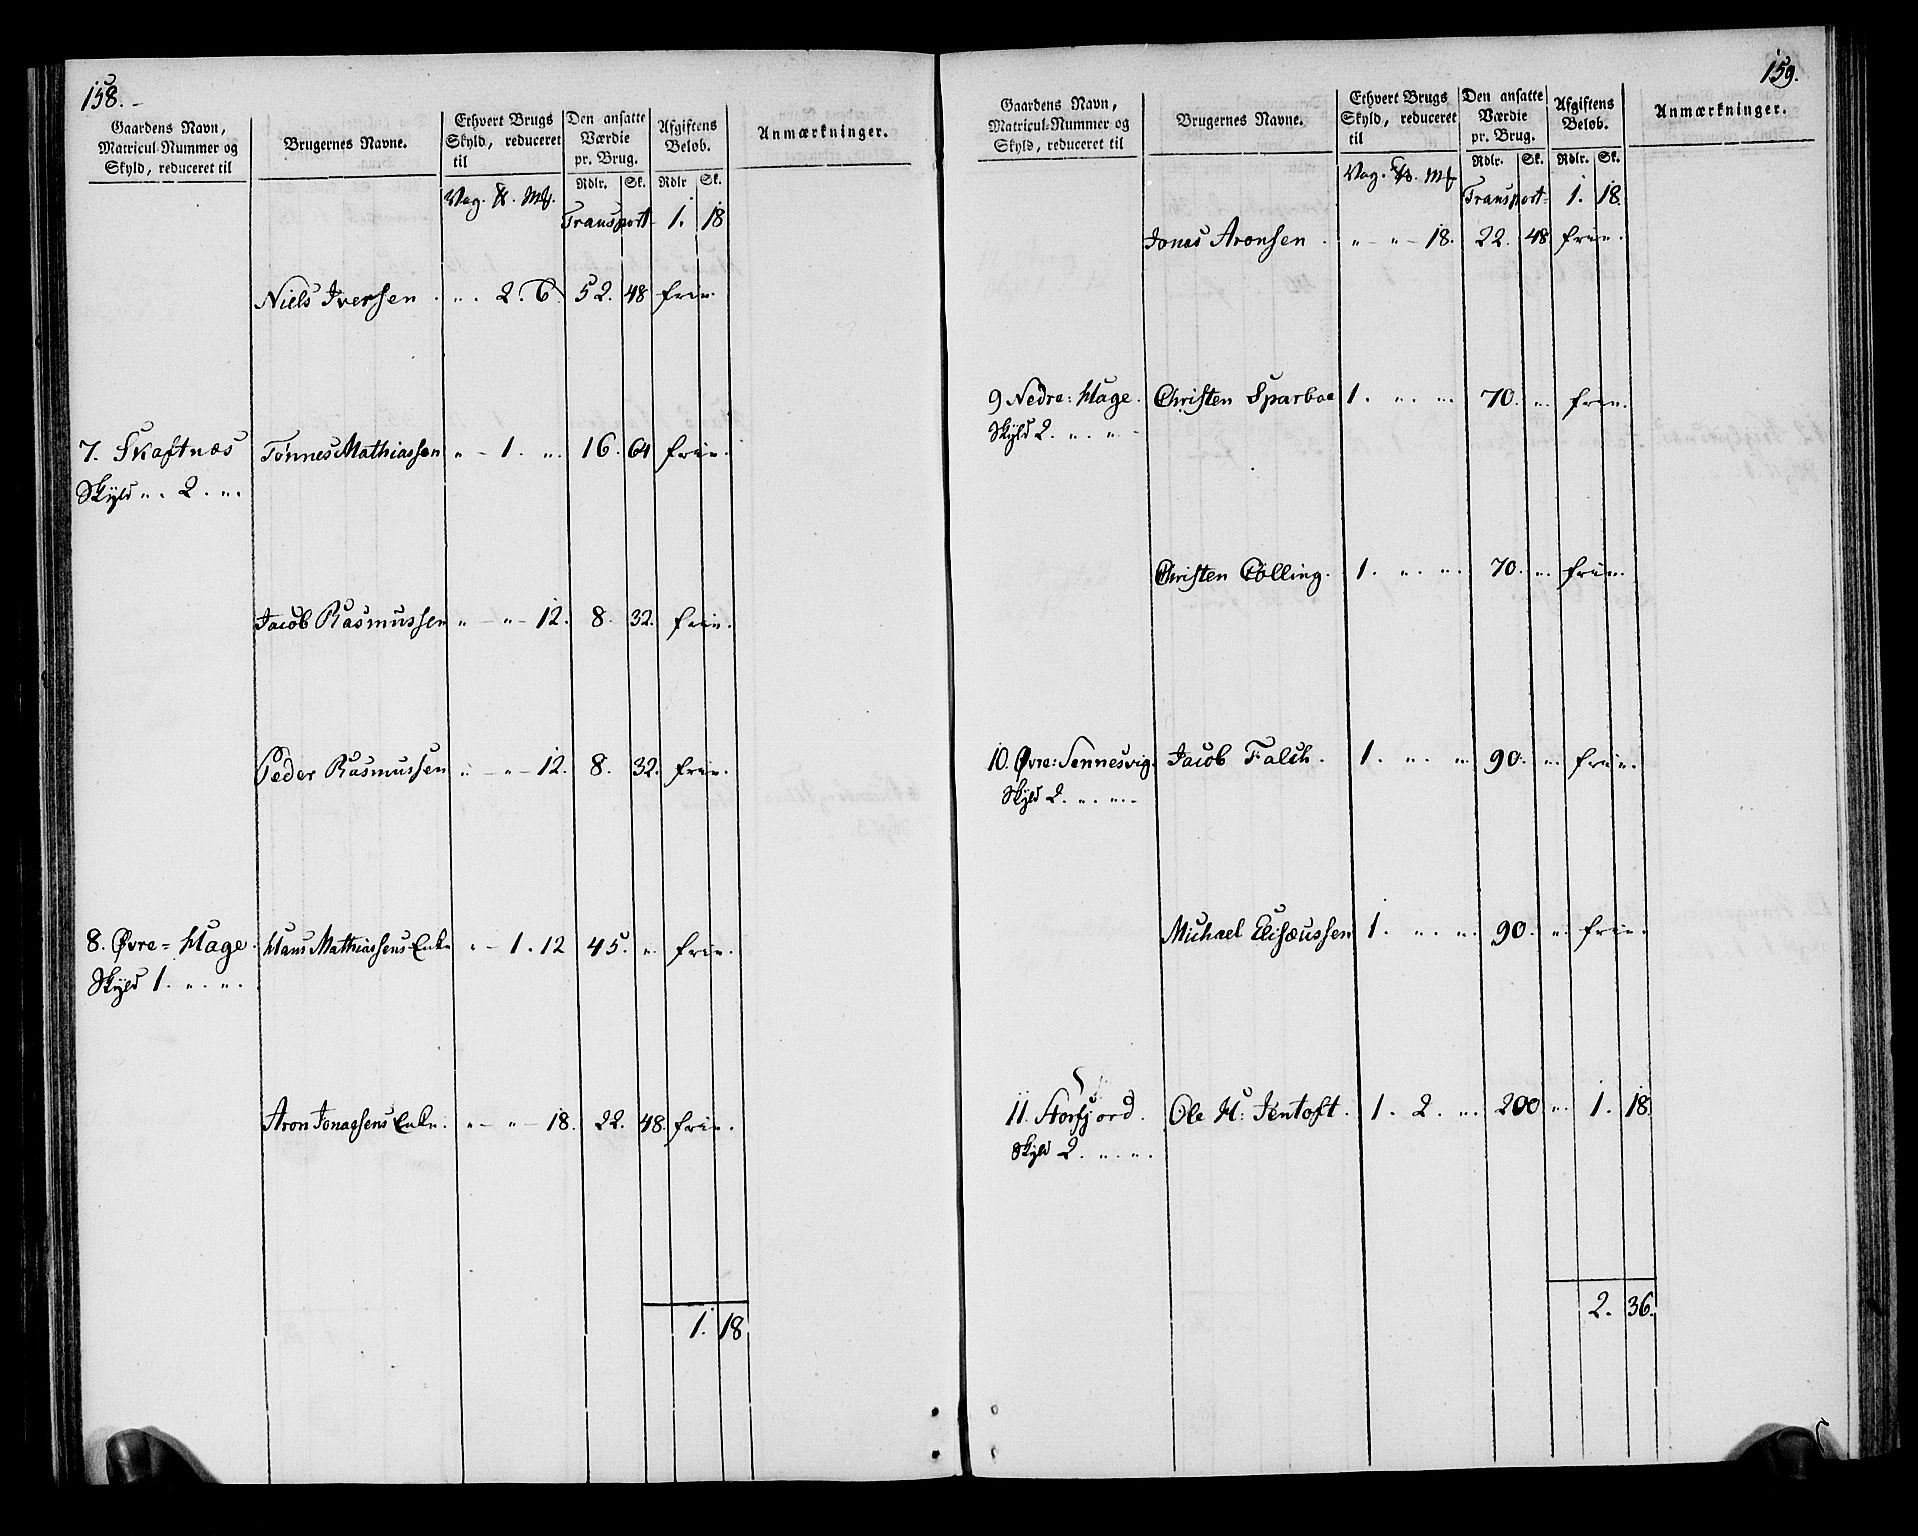 158.
Gaardens Navn, Matricul-Nummer og Skyld, reduceret til | Brugernes Navne. | Ethvert Brugs Skyld, reduceret til | Den ansatte Værdie pr. Brug. | Afgiftens Beløb. | Anmærkninger.
Vog. ℔. Mk. | Rdlr. | Sk. | Rdlr | Sk.
Transport 1. 18
Niels Iversen . „ . 2. 6. 52. 48 frie.
7. Skaftnæs Tønnes Mathiassen „ - 1. „. 16. 64 frie.
Skyld „. 2. „.
Jacob Rasmussen „ - „ - 12. 8. 32. frie.
Peder Rasmussen „ - „ - 12. 8. 32. frie.
8. Øvre=Hage. Hans Mathiassens Enke „ - 1. 12 45. „. frie.
Skyld 1. „. „.
Aron Jonassens Enke. „ - „ - 18. 22. 48. frie.
1. 18
159.
Gaardens Navn, Matricul-Nummer og Skyld, reduceret til | Brugernes Navne. | Ethvert Brugs Skyld, reduceret til | Den ansatte Værdie pr. Brug. | Afgiftens Beløb. | Anmærkninger.
Vog. ℔. Mk | Rdlr. | Sk. | Rdlr. | Sk.
Transport 1. 18.
Jonas Aronsen . „ - „ - 18. 22. 48 frie.
9 Nedre: Hage. Christen Sparboe 1. „. „. 70. „. frie.
Skyld 2. „. „ -
Christen Cølling. 1. „. „. 70. „. frie.
10. Øvre: Sennesvig. Jacob Falch. 1. „. „ 90. „. frie.
Skyld 2. „. „. -
Michael Elisæussen 1. „. „. 90. „. frie.
11. Storfjord. Ole H: Jentoft. 1. 2. „. 200 „. 1. 18.
Skyld 2. „. „.
2. 36.